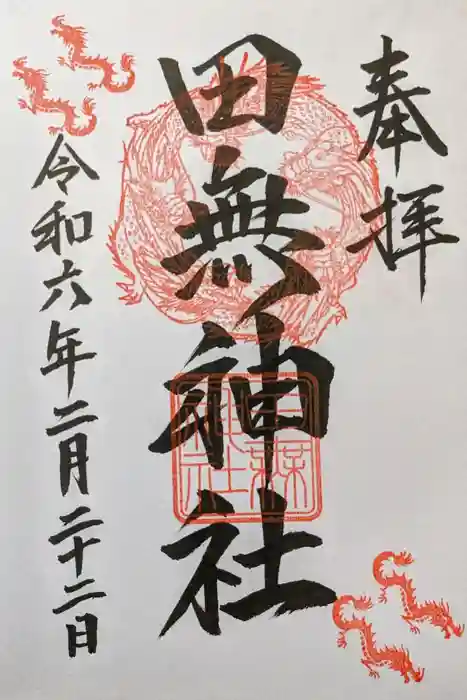 奉拝
田無神社
令和六年二月二十二日